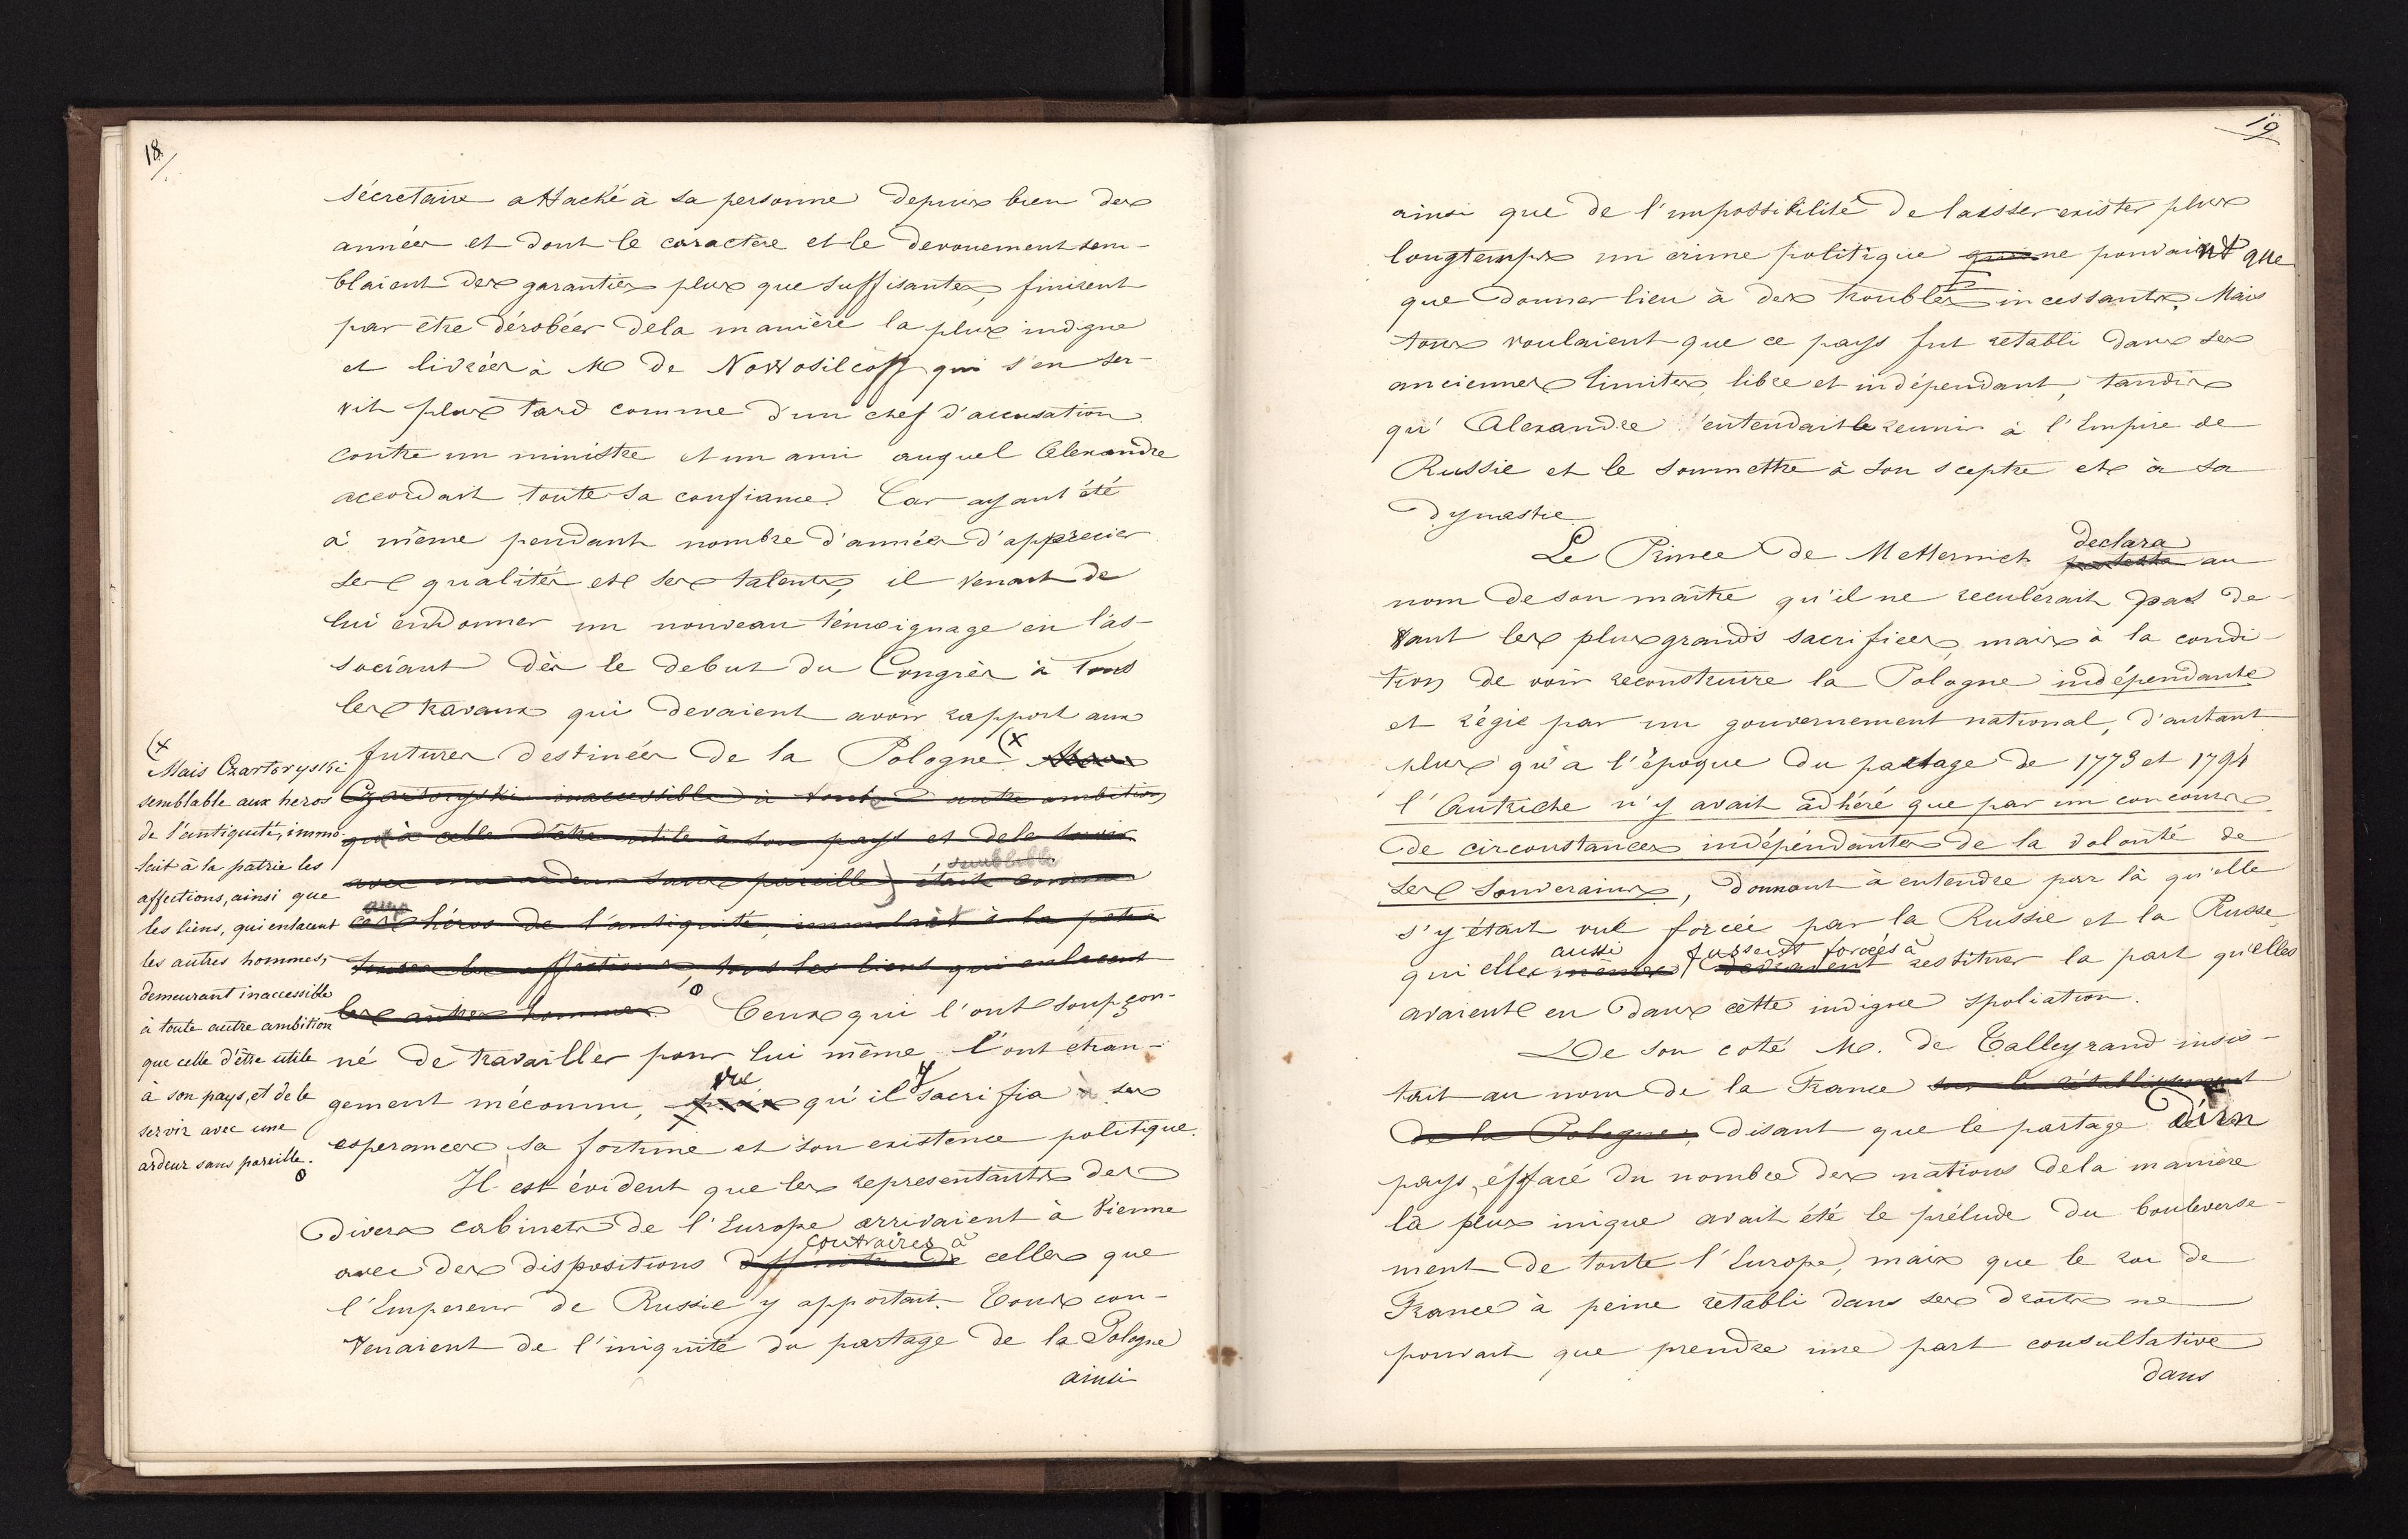 18
sécretaire attaché à sa personne depuis bien des
années et dont le caractère et le devouement sem-
blaient des garanties plus que suffisantes, finirent
par être dérobées dela manière la plus indigne
et livrées à M de Nowosilcoff qui s'en ser-
vit plus tard comme d'un chef d'accusation
contre un ministre et un ami auquel Alexandre
accordait toute sa confiance. Car ayant été
à même pendant nombre d'années d'apprecier
ses qualités et ses talents, il venait de
lui en donner un nouveau témoignage en l'as-
sociant dès le debut du Congrès à tous
les travaux qui devaient avoir rapport aux
futures destinées de la Pologne (x
Czartoryski inaccessible à toute autre ambition
qu'à celle d'être utile à son pays et de le servir
, semblable
avec une ardeur sans pareille) était comme
aux
ces héros de l'antiquité, immolait à la patrie
toutes les affections, tous les liens qui enlacent
les autres hommes. Ceux qui l'ont soupçon-
né de travailler pour lui même, l'ont étran-
vu
gement méconnu, mais qu'il y sacrifia à ses
esperances sa fortune et son existence politique.
Il est évident que les representants des
divers cabinets de l'Europe arrivaient à Vienne
contraires à
avec des dispositions différentes de celles que
l'Empereur de Russie y apportait. Tous con-
venaient de l'iniquité du partage de la Pologne
ainsi
(x
Mais Czartoryski
semblable aux heros
de l'antiquité, immo-
lait à la patrie les
affections, ainsi que
les liens, qui enlacent
les autres hommes,
demeurant inaccessible
à toute autre ambition
que celle d'être utile
à son pays, et de le
servir avec une
ardeur sans pareille.
19
ainsi que de l'impossibilité de laisser exister plus
longtemps un crime politique qui ne pouvaint que
que donner lieu à des troubles incessants. Mais
tous voulaient que ce pays fut retabli dans ses
anciennes limites, libre et indépendant, tandis
qu'Alexandre entendait le reunir à l'Empire de
Russie et le soumettre à son sceptre et à sa
dynastie
declara
Le Prince de Metternich protesta au
nom de son maître qu'il ne reculerait pas de-
vant les plus grands sacrifices, mais à la condi-
tion de voir reconstruire la Pologne indépendante
et régie par un gouvernement national, d'autant
plus qu'à l'époque du partage de 1773 et 1794
l'Autriche n'y avait adhéré que par un concours
de circonstances indépendantes de la volonté de
ses Souverains, donnant à entendre par là qu'elle
s'y était vue forcée par la Russie et la Prusse
aussi fussent forcées à
qui elles mêmes devraient restituer la part qu'elles
avaient eu dans cette indigne spoliation.
De son coté M. de Talleyrand insis-
tait au nom de la France sur le rétablissement
de la Pologne, disant que le partage d'un
pays, éffacé du nombre des nations dela manière
la plus inique avait été le prélude du bouleverse-
ment de toute l'Europe, mais que le roi de
France à peine rétabli dans ses droits ne
pouvait que prendre une part consultative
dans